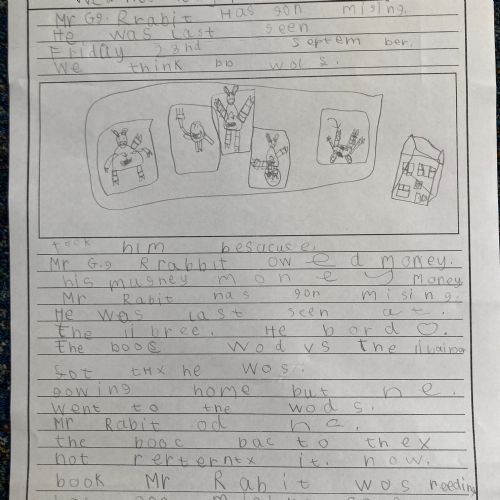 Mr Gg. Rrabit Has gon mising.
He was last seen
Friday 23nd Septem ber.
We think bb wols.
took him besacuse.
Mr G.g Rrabbit ow e d money.
his musney m o n e y Money
Mr Rabit has gon mising.
He was last seen at.
the li bree. He bord
the booc Wod vs The
he wos.
gowing home but n e.
went to the wods.
Mr Rabit od
the booc bac to thex
not rerterntx it. now.
book Mr Rabit wos reeding